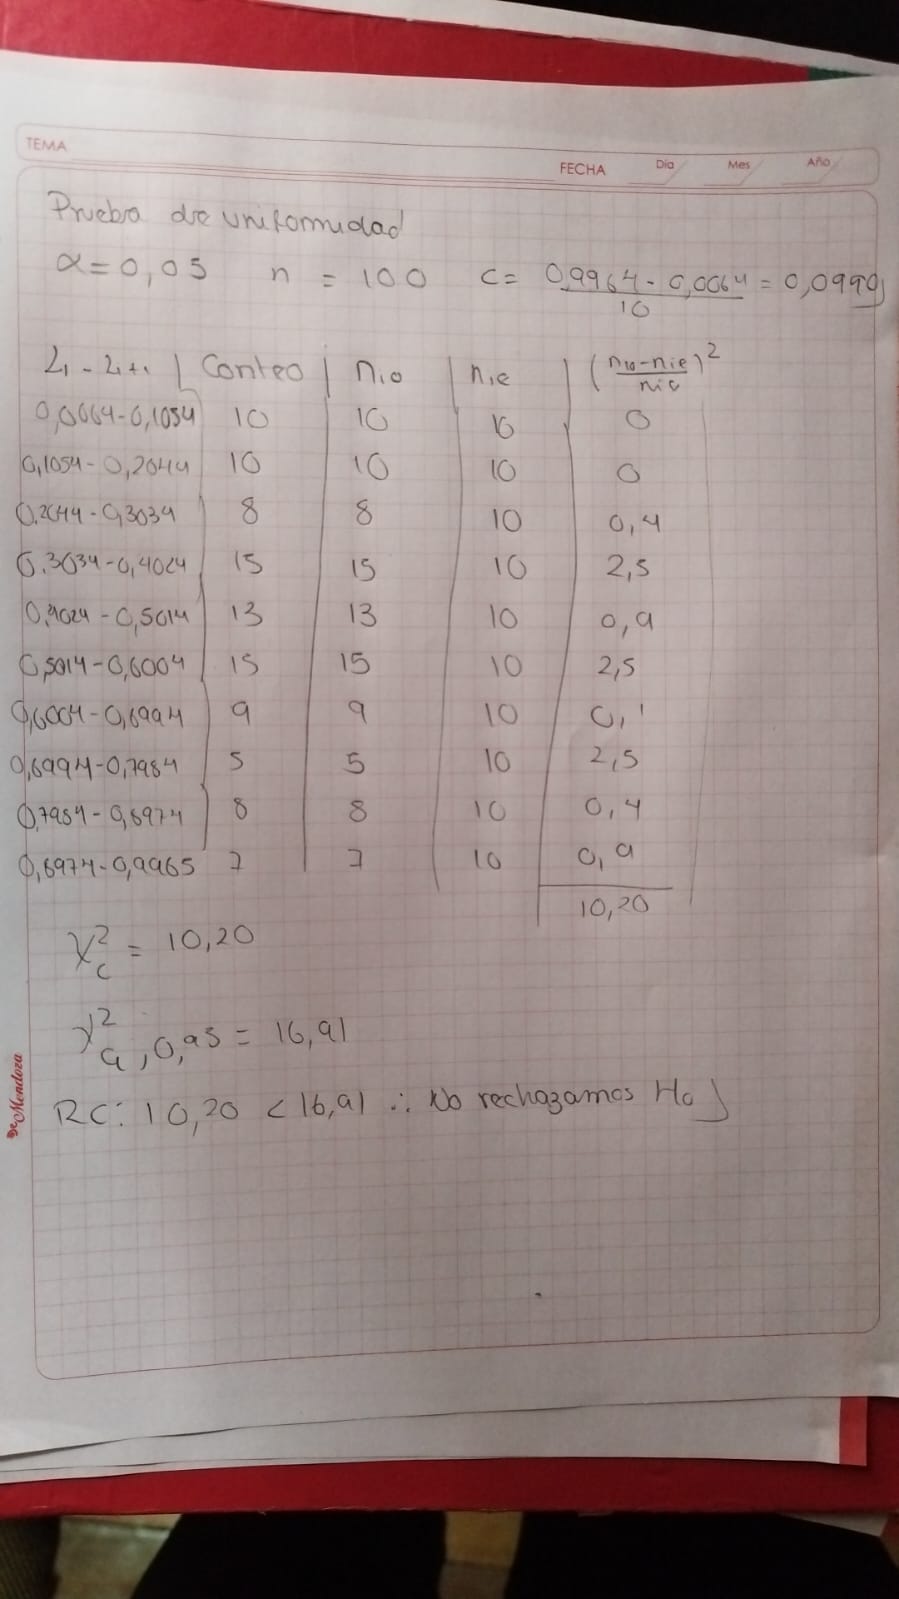 TEMA
FECHA Día Mes Año
Prueba de uniformidad
α = 0,05 n = 100 c = 0,9964 - 0,0064 / 10 = 0,0990
Li - Li+1 | Conteo | nio | nie | (nio-nie / nie)²
0,0064-0,1054 10 10 10 0
0,1054-0,2044 10 10 10 0
0,2044-0,3034 8 8 10 0,4
0,3034-0,4024 15 15 10 2,5
0,4024-0,5014 13 13 10 0,9
0,5014-0,6004 15 15 10 2,5
0,6004-0,6994 9 9 10 0,1
0,6994-0,7984 5 5 10 2,5
0,7984-0,8974 8 8 10 0,4
0,8974-0,9965 7 7 10 0,9
10,20
χ²c = 10,20
χ²9,0,95 = 16,91
RC: 10,20 < 16,91 ∴ No rechazamos Ho
De Mendoza